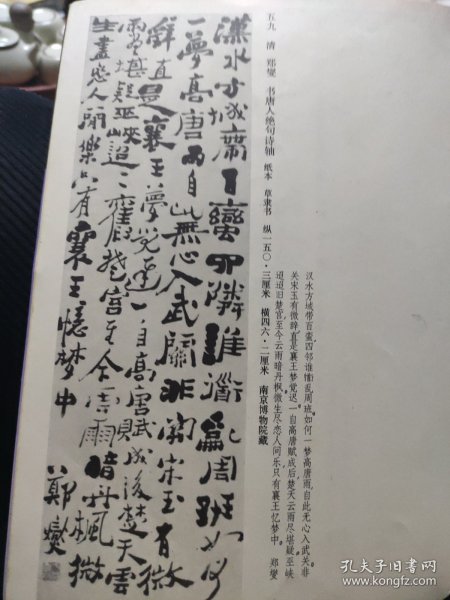 五九 清 郑燮 书唐人绝句诗轴 纸本 草隶书 纵一五〇·三厘米 横四六·二厘米 南京博物院藏
汉水方城带百蛮,四邻谁乱周班。如何一梦高唐雨,自此无心入武关。非
关宋玉有微辞,直是襄王梦觉迟。一自高唐赋成后,楚天云雨尽堪疑。巫峡
迢迢旧楚宫,至今云雨暗丹枫。微生尽恋人间乐,只有襄王忆梦中。 郑燮
漢水方城帶百蠻四隣誰亂周班如何
一夢高唐雨自此無心入武關非關宋玉有微
辭直是襄王夢覺遲一自高唐賦成後楚天雲
雨盡堪疑巫峽迢迢舊楚宮至今雲雨暗丹楓微
生盡戀人間樂只有襄王憶夢中
鄭燮
孔夫子旧书网
book.kongfz.com